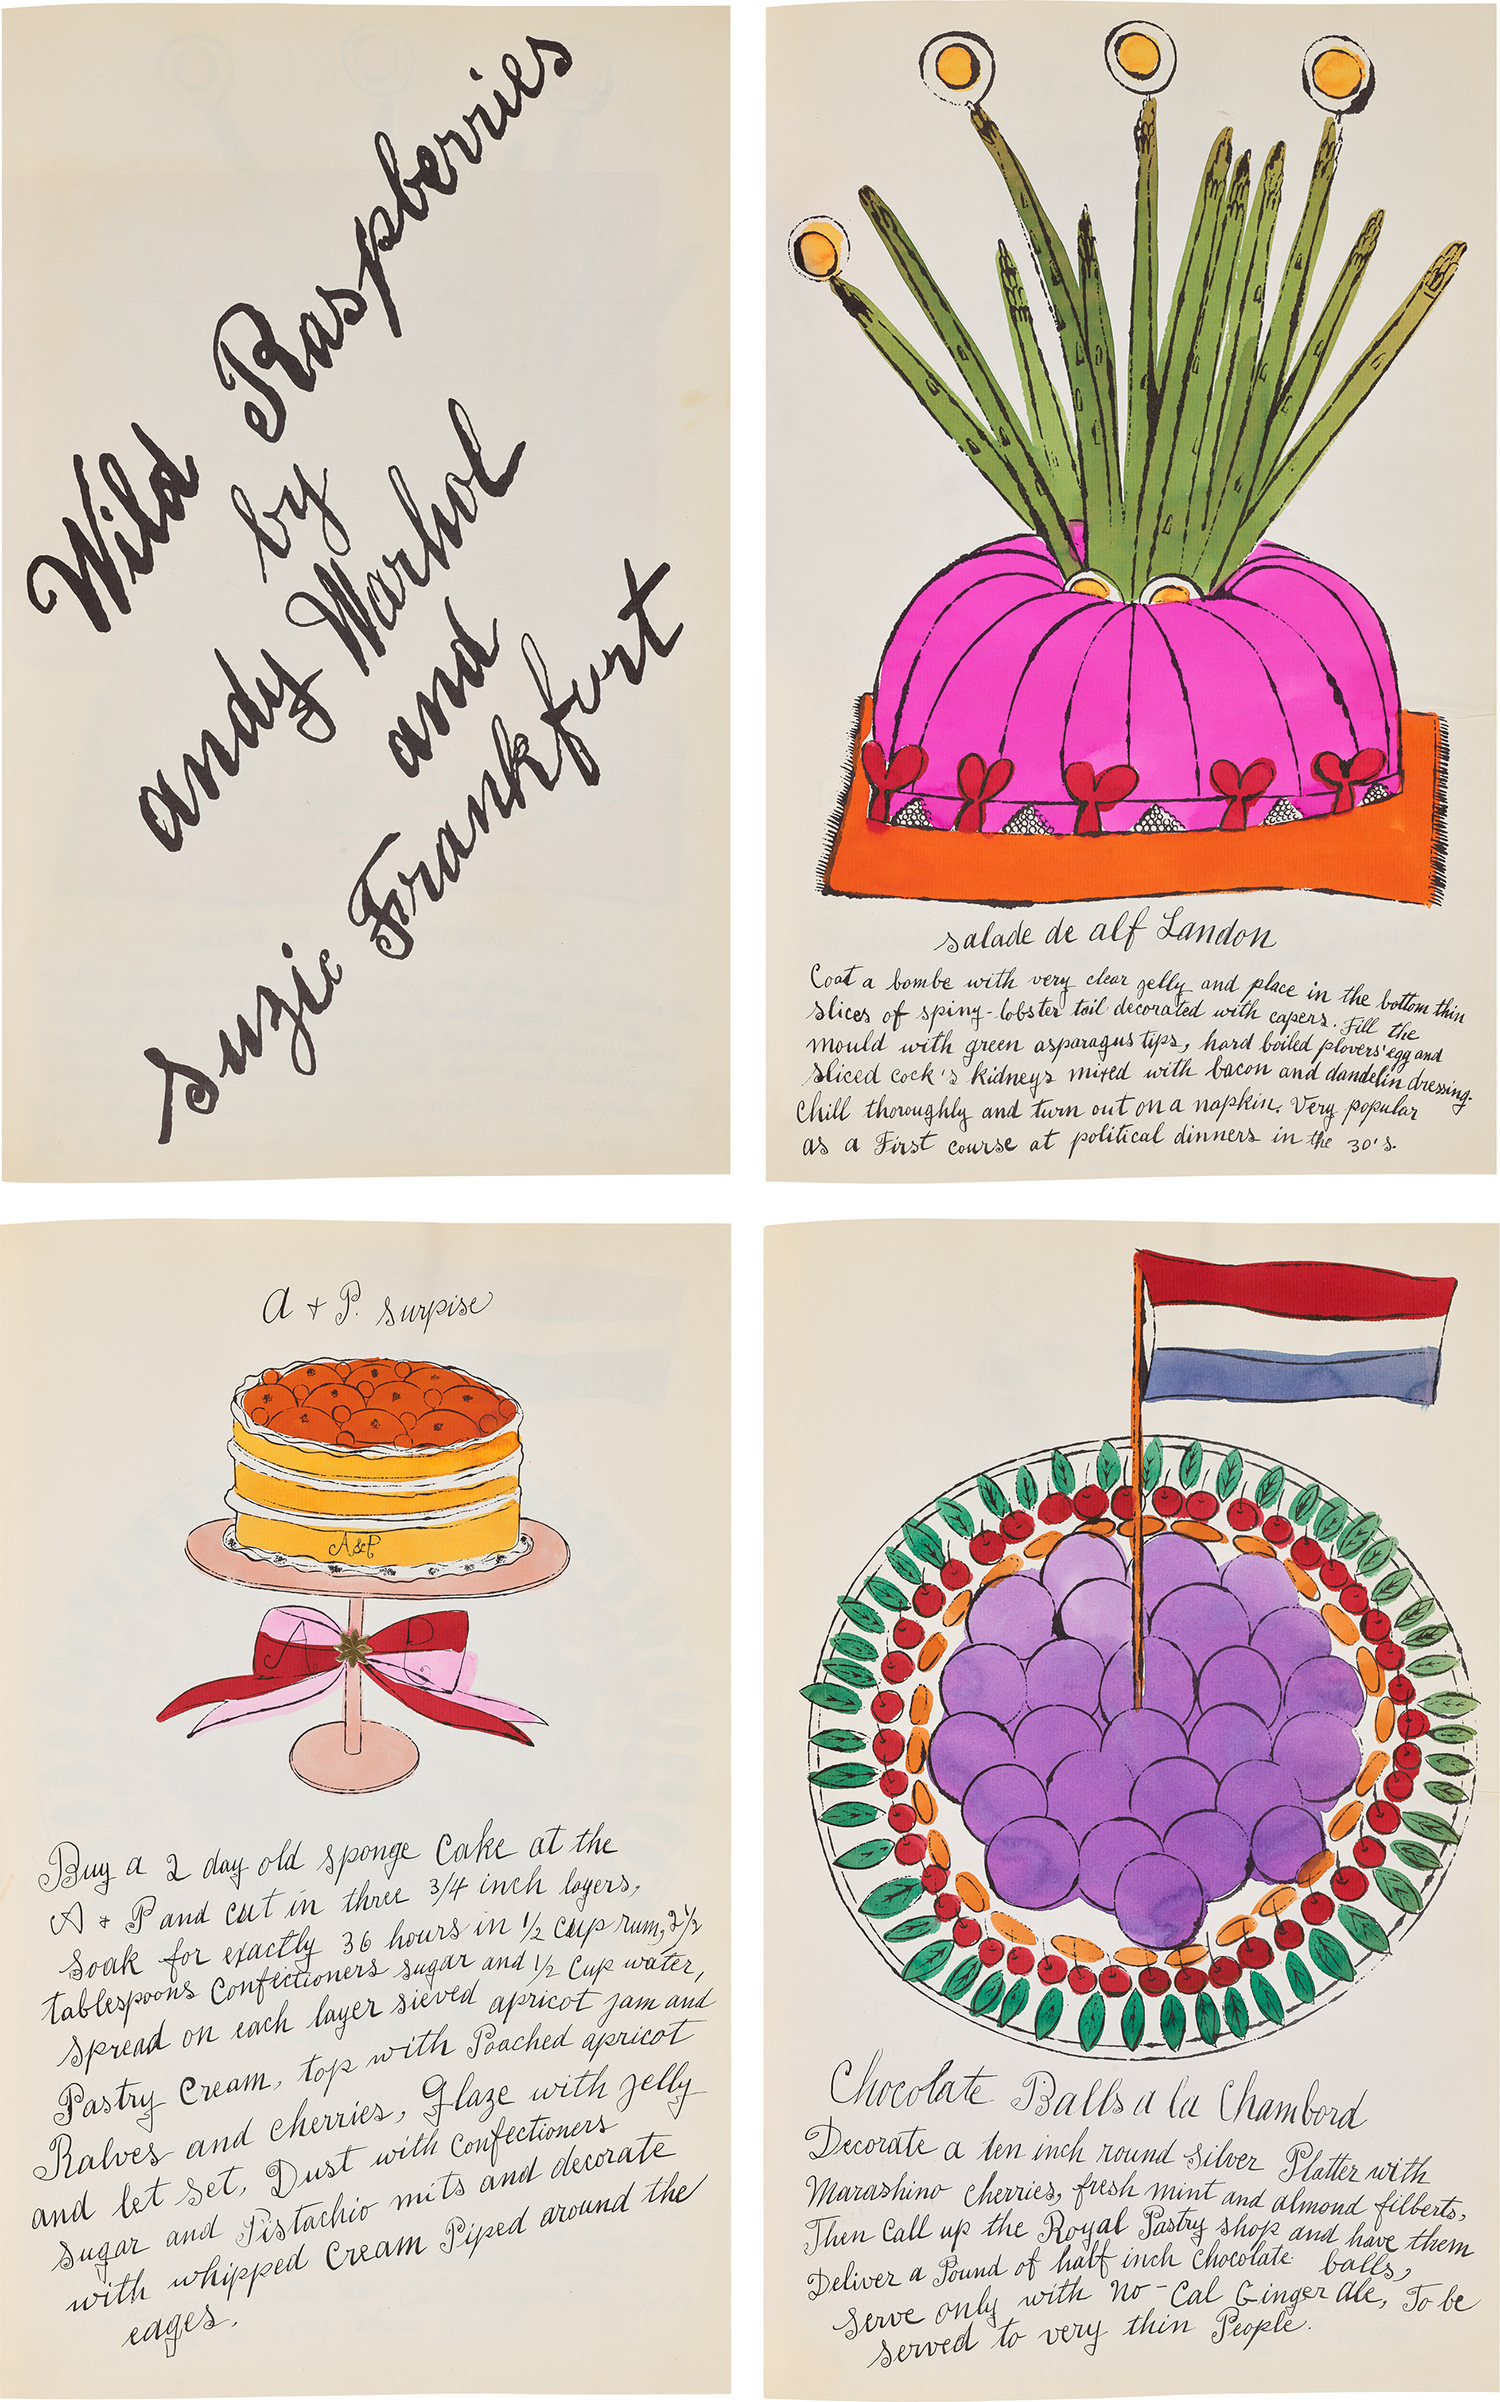 Wild Raspberries
by
andy Warhol
and
Suzie Frankfurt
salade de alf Landon
Coat a bombe with very clear jelly and place in the bottom thin
slices of spiny-lobster tail decorated with capers. Fill the
mould with green asparagus tips, hard boiled plovers' egg and
sliced cock's kidneys mixed with bacon and dandelin dressing.
Chill thoroughly and turn out on a napkin. Very popular
as a First course at political dinners in the 30's.
A + P. surpise
A&P
A P
Buy a 2 day old sponge Cake at the
A + P and cut in three 3/4 inch layers,
Soak for exactly 36 hours in 1/2 Cup rum, 2 1/2
tablespoons Confectioners sugar and 1/2 Cup water,
Spread on each layer sieved apricot jam and
Pastry Cream, top with Poached apricot
Ralves and cherries, Glaze with jelly
and let Set, Dust with Confectioners
Sugar and Pistachio mits and decorate
with whipped Cream Piped around the
eages.
Chocolate Balls a la Chambord
Decorate a ten inch round Silver Platter with
Marashino Cherries, fresh mint and almond filberts,
Then Call up the Royal Pastry shop and have them
Deliver a Pound of half inch Chocolate balls,
Serve only with No-Cal Ginger Ale, To be
Served to very thin People.